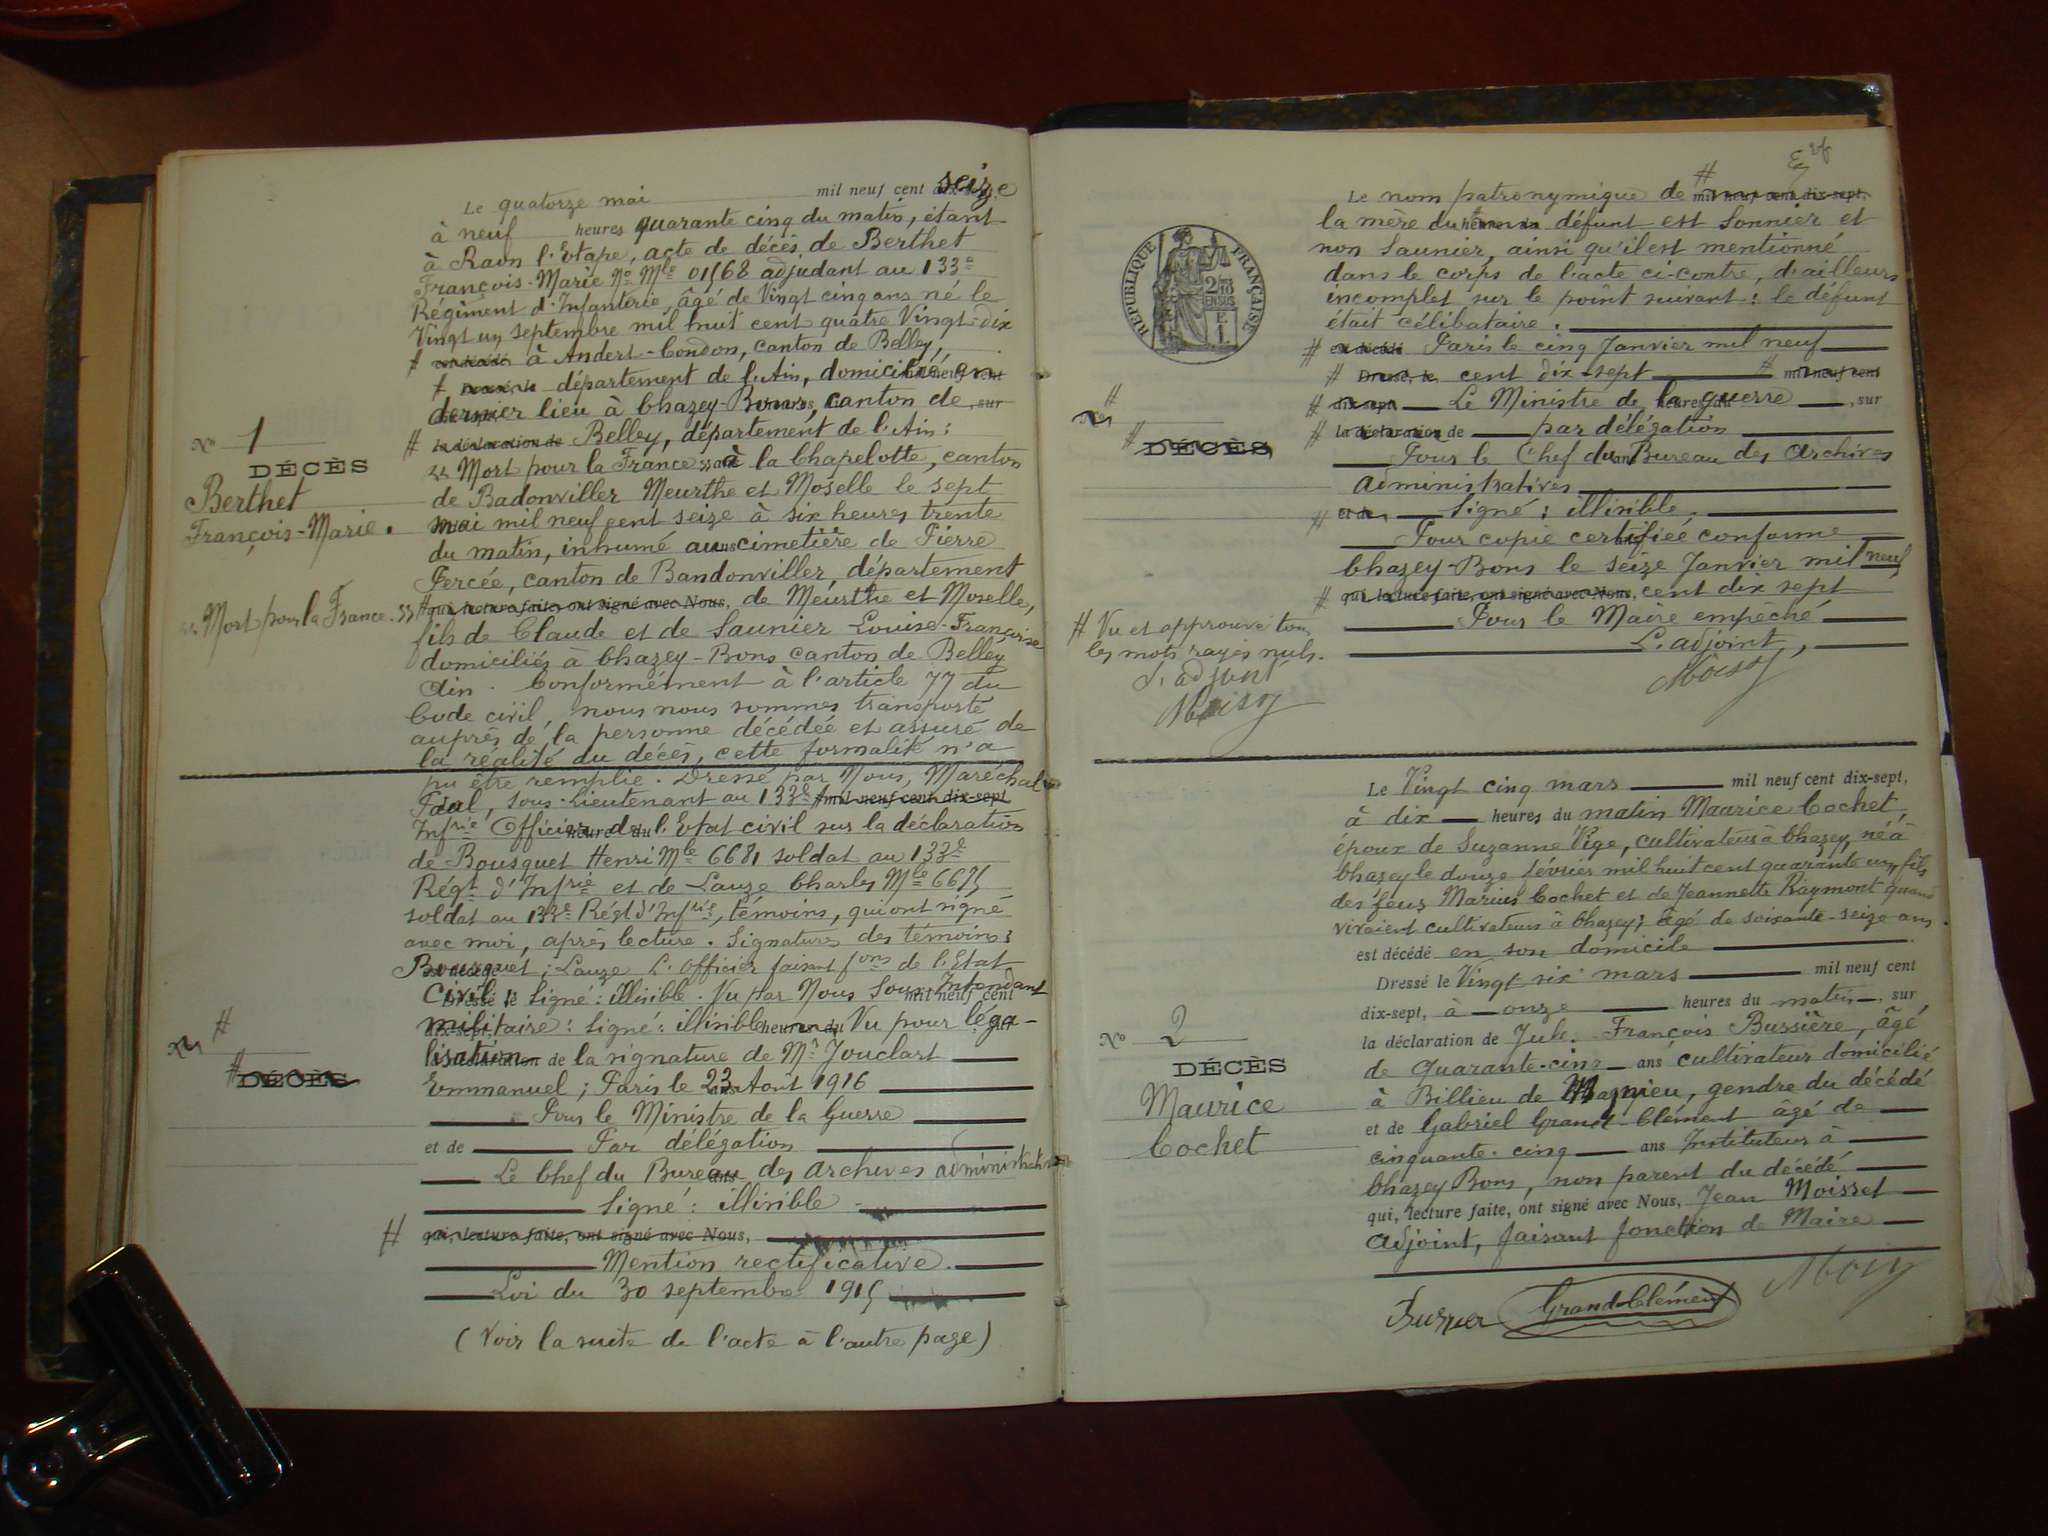 Le quatorze mai mil neuf cent dix-sept seize
à neuf heures quarante cinq du matin, étant
à Raon l'Etape, acte de décès de Berthet
François-Marie No Mle 01568 adjudant au 133e
Régiment d'Infanterie, âgé de Vingt cinq ans né le
Vingt un septembre mil huit cent quatre Vingt-dix
# est décédé à Andert-Condon, canton de Belley,
# Dressé, le département de l'Ain, domicilié en mil neuf cent
dernier lieu à Chazey-Bons, canton de , sur
No 1
# la déclaration de Belley, département de l'Ain :
DÉCÈS
Berthet
François-Marie.
"Mort pour la France" à la Chapelotte, canton
de Badonviller Meurthe et Moselle le sept
mai mil neuf cent seize à six heures trente
du matin, inhumé au cimetière de Pierre
Percée, canton de Bandonviller, département
"Mort pour la France."
# qui, lecture faite, ont signé avec Nous, de Meurthe et Moselle,
fils de Claude et de Saunier Louise-Françoise
domiciliés à Chazey-Bons canton de Belley
Ain. Conformément à l'article 77 du
Code civil, nous nous sommes transporté
auprès de la personne décédée et assuré de
la réalité du décès, cette formalité n'a
pu être remplie. Dressé par Nous, Maréchal
Paul, sous-Lieutenant au 133e # mil neuf cent dix-sept
Infrie Officier de l'Etat civil sur la déclaration
de Bousquet Henri Mle 6681 soldat au 133e
Régt d'Infrie et de Lauze Charles Mle 6695
soldat au 133e Régt d'Infrie, témoins, qui ont signé
avec moi, après lecture. Signatures des témoins :
Bousquet ; Lauze L'Officier faisant fons de l'Etat
Civil : Signé : illisible. Vu par Nous Sous-Intendant
militaire : Signé : illisible Vu pour léga-
lisation de la signature de Mr Jouclart
Emmanuel ; Paris le 23 Août 1916
# DÉCÈS
Pour le Ministre de la Guerre
et de Par délégation
Le Chef du Bureau des archives administratives
Signé : illisible
# qui, lecture faite, ont signé avec Nous,
Mention rectificative.
Loi du 30 septembre 1915
(Voir la suite de l'acte à l'autre page)
Le nom patronymique de # mil neuf cent dix-sept,
la mère du défunt est Sonnier et
non Saunier, ainsi qu'il est mentionné
dans le corps de l'acte ci-contre, d'ailleurs
incomplet sur le point suivant : le défunt
était célibataire.
RÉPUBLIQUE FRANÇAISE
# est décédé Paris le cinq Janvier mil neuf
# Dressé, le cent dix-sept # mil neuf cent
# dix-sept, Le Ministre de la guerre , sur
# la déclaration de par délégation
# DÉCÈS
Pour le Chef du Bureau des Archives
administratives
# et de Signé : illisible.
Pour copie certifiée conforme
Chazey-Bons le seize Janvier mil neuf
# qui, lecture faite, ont signé avec Nous, cent dix sept
Pour le Maire empêché
L'adjoint,
Moisset
# Vu et approuvé tous
les mots rayés nuls.
L'adjoint
Moisset
Le Vingt cinq mars mil neuf cent dix-sept,
à dix heures du matin Maurice Cochet,
époux de Suzanne Vige, cultivateur à Chazey, né à
Chazey le douze février mil huit cent quarante un, fils
des feus Marius Cochet et de Jeannette Raymont quand
vivaient cultivateurs à Chazey, âgé de soixante-seize ans.
est décédé en son domicile
Dressé le Vingt six mars mil neuf cent
dix-sept, à onze heures du matin, sur
No 2
la déclaration de Jules François Bussière, âgé
DÉCÈS
Maurice
Cochet
de quarante-cinq ans cultivateur domicilié
à Billieu de Magnieu, gendre du décédé
et de Gabriel Grand-Clément âgé de
cinquante-cinq ans Instituteur à
Chazey Bons, non parent du décédé
qui, lecture faite, ont signé avec Nous, Jean Moisset
adjoint, faisant fonction de Maire
Grand-Clément